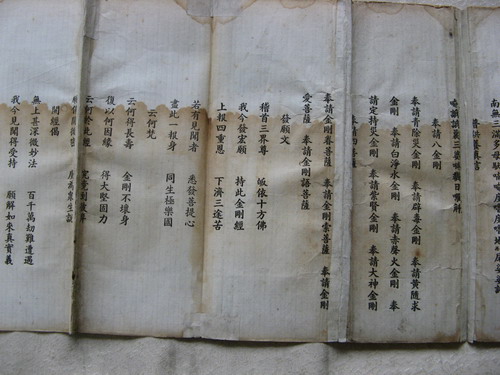 普供養真言
奉請八金剛
奉請青除災金剛 奉請辟毒金剛 奉請黃隨求
金剛 奉請白淨水金剛 奉請赤聲火金剛 奉
請定持災金剛 奉請紫賢金剛 奉請大神金剛
奉請四菩薩
奉請金剛眷菩薩 奉請金剛索菩薩 奉請金剛
愛菩薩 奉請金剛語菩薩
發願文
稽首三界尊 皈依十方佛
我今發宏願 持此金剛經
上報四重恩 下濟三途苦
若有見聞者 悉發菩提心
盡此一報身 同生極樂國
云何梵
云何得長壽 金剛不壞身
復以何因緣 得大堅固力
云何於此經 究竟到彼岸
願佛開微密 廣為眾生說
開經偈
無上甚深微妙法 百千萬劫難遭遇
我今見聞得受持 願解如來真實義